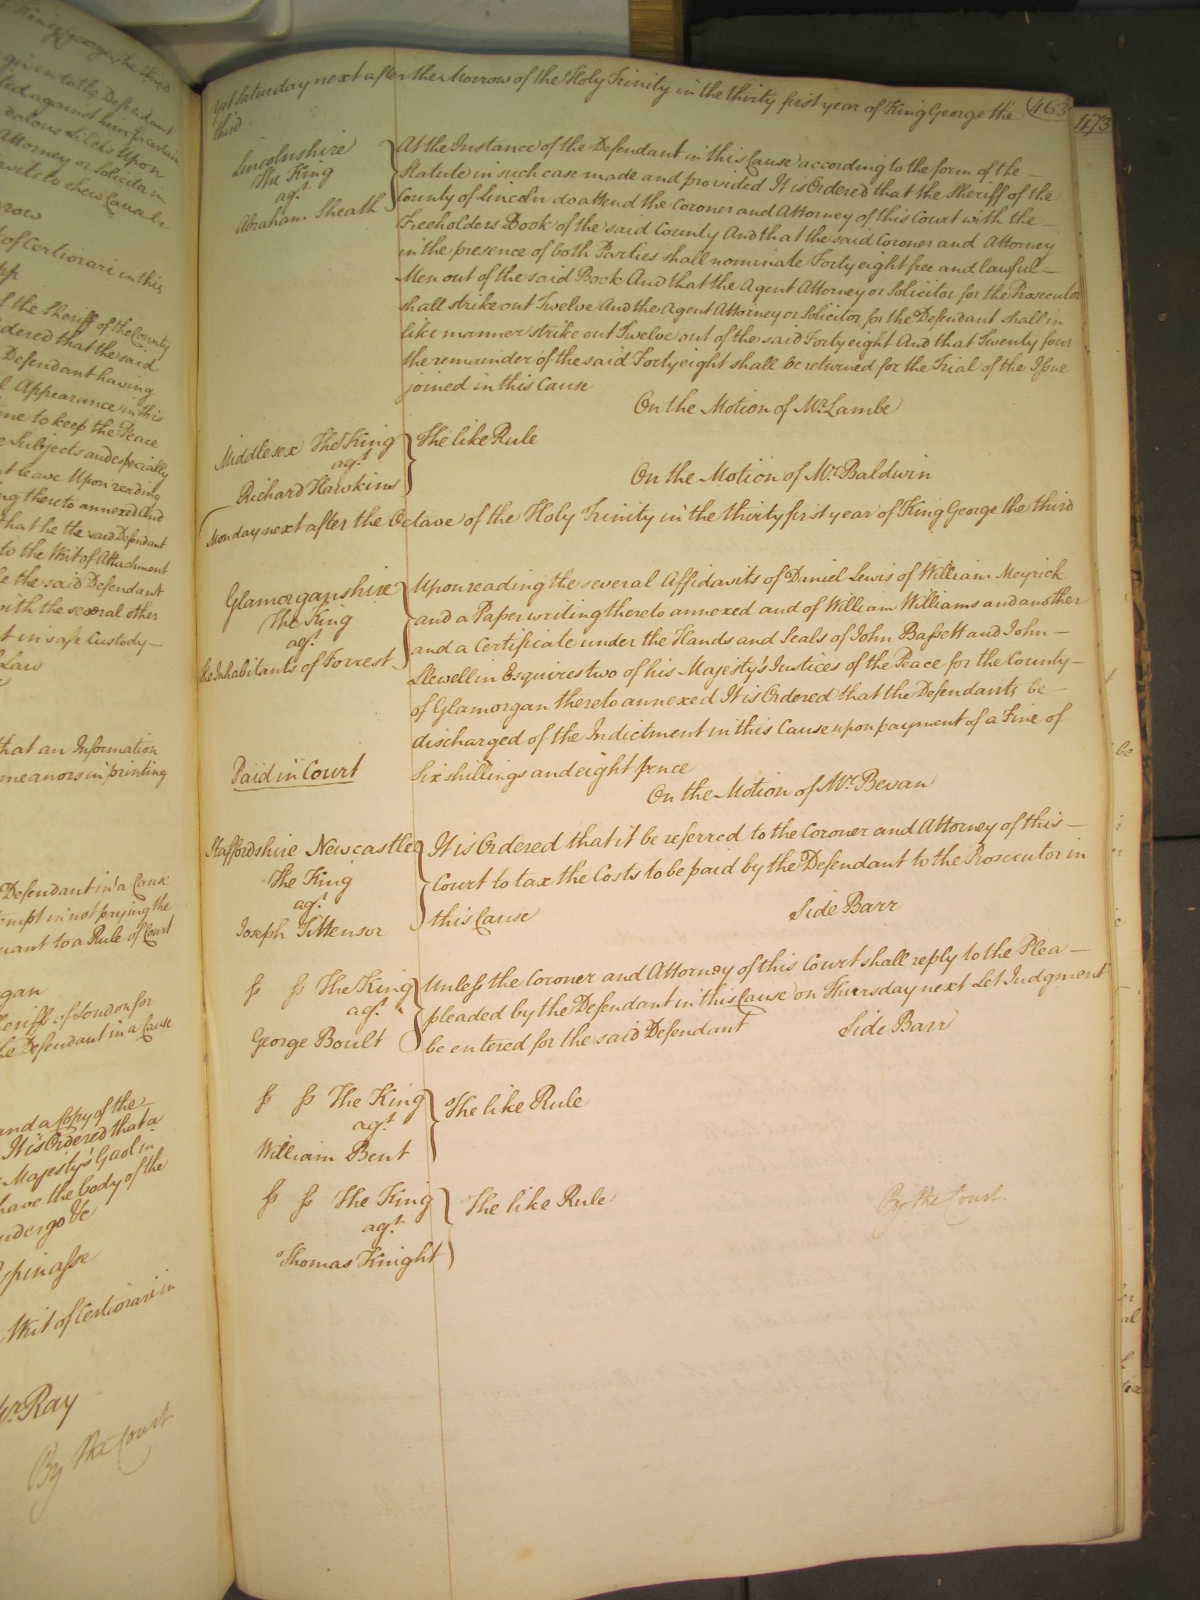 King George the third
given to the Defendant
against him for certain
Libels Upon
Attorney or Solicitor in
to shew Cause
of Certiorari in this
the Sheriff of the County
ordered that the said
Defendant having
Appearance in this
to keep the Peace
Subjects and especially
leave Upon reading
thereto annexed And
that he the said Defendant
to the Writ of Attachment
the said Defendant
with the several other
in safe Custody
Law
that an Information
in printing
Defendant in a Cause
in not paying the
to a Rule of Court
Sheriff of London for
the Defendant in a Cause
and a Copy of the
It is Ordered that a
Majesty's Gaol in
have the body of the
undergo &c
Writ of Certiorari in
Mr. Ray
By the Court
yet Saturday next after the Morrow of the Holy Trinity in the thirty first year of King George the 463
third
473
Lincolnshire
The King
agt.
Abraham Sheath
At the Instance of the Defendant in this Cause according to the form of the
Statute in such case made and provided It is Ordered that the Sheriff of the
County of Lincoln do attend the Coroner and Attorney of this Court with the
Freeholders Book of the said County And that the said Coroner and Attorney
in the presence of both Parties shall nominate Forty eight free and lawful
Men out of the said Book And that the Agent Attorney or Solicitor for the Prosecutor
shall strike out Twelve And the Agent Attorney or Solicitor for the Defendant shall in
like manner strike out Twelve out of the said Forty eight And that Twenty four
the remainder of the said Forty eight shall be returned for the Trial of the Issue
joined in this Cause
On the Motion of Mr. Lambe
Middlesex The King
agt.
Richard Hawkins
The like Rule
On the Motion of Mr. Baldwin
Monday next after the Octave of the Holy Trinity in the thirty first year of King George the third
Glamorganshire
The King
agt.
the Inhabitants of Forrest
Upon reading the several Affidavits of Daniel Lewis of William Meyrick
and a Paper writing thereto annexed and of William Williams and another
and a Certificate under the Hands and Seals of John Bassett and John
Llewellin Esquires two of his Majesty's Justices of the Peace for the County
of Glamorgan thereto annexed It is Ordered that the Defendants be
discharged of the Indictment in this Cause upon payment of a Fine of
Six shillings and eight pence
Paid in Court
On the Motion of Mr. Bevan
Staffordshire Newcastle
The King
agt.
Joseph Tittensor
It is Ordered that it be referred to the Coroner and Attorney of this
Court to tax the Costs to be paid by the Defendant to the Prosecutor in
this Cause
Side Barr
ſs ſs The King
agt.
George Boult
Unless the Coroner and Attorney of this Court shall reply to the Plea
pleaded by the Defendant in this Cause on Thursday next Let Judgment
be entered for the said Defendant
Side Barr
ſs ſs The King
agt.
William Bent
The like Rule
ſs ſs The King
agt.
Thomas Knight
The like Rule
By the Court